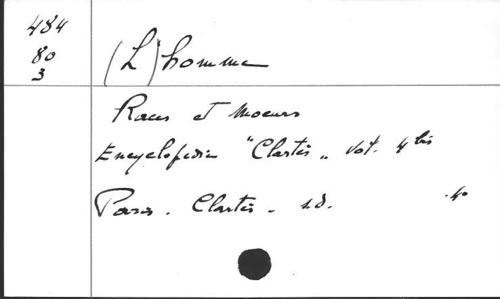 484
80
3
(L')homme
Races et Moeurs
Encyclopédie "Clartés" vol. 4 bis
Paris. Clartés. s.d. .4°